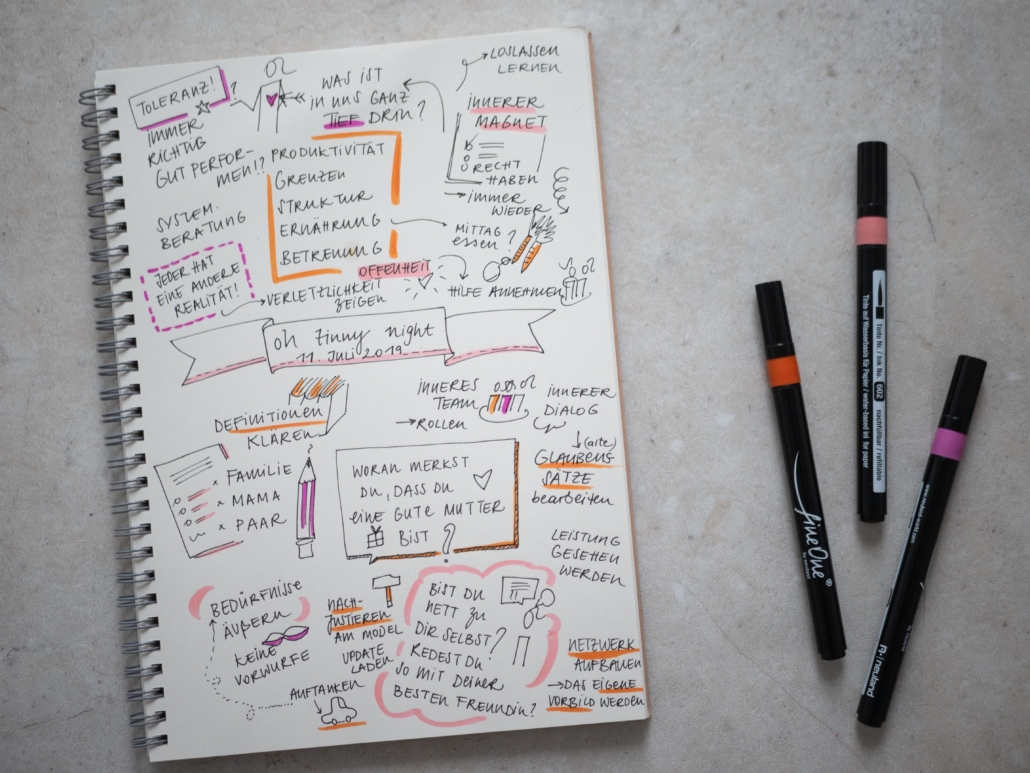 TOLERANZ!
?
IMMER
RICHTIG
GUT PERFOR-
MEN!?
WAS IST
in UNS GANZ
TIEF DRIN?
LOSLASSEN
LERNEN
INNERER
MAGNET
RECHT
HABEN
→ immer
WIEDER
PRODUKTIVITÄT
GRENZEN
STRUKTUR
ERNÄHRUNG
BETREUUNG
MITTAG
essen?
OFFENHEIT
HILFE ANNEHMEN
SYSTEM.
BERATUNG
JEDER HAT
EINE ANDERE
REALITÄT!
VERLETZLICHKEIT
ZEIGEN
oh zinny night
11. JULI 2019
DEFINITIONEN
KLÄREN
INNERES
TEAM
→ ROLLEN
INNERER
DIALOG
(alte)
GLAUBENS
SÄTZE
bearbeiten
x FAMILIE
x MAMA
x PAAR
WORAN MERKST
DU, DASS DU
eine GUTE MUTTER
BIST ?
LEISTUNG
GESEHEN
WERDEN
BEDÜRFNISSE
ÄUßERN
KEINE
VORWÜRFE
NACH-
JUSTIEREN
AM MODEL
UPDATE
LADEN
AUFTANKEN
BIST DU
NETT ZU
DIR SELBST?
REDEST DU
SO MIT DEINER
BESTEN FREUNDIN?
NETZWERK
AUFBAUEN
→ DAS EIGENE
VORBILD WERDEN
Tinte Nr. / Ink No. 002 nachfüllbar / refillable
Tinte auf Wasserbasis für Papier / water-based ink for paper
fineOne®
by neuland
www.neuland.com
neuland